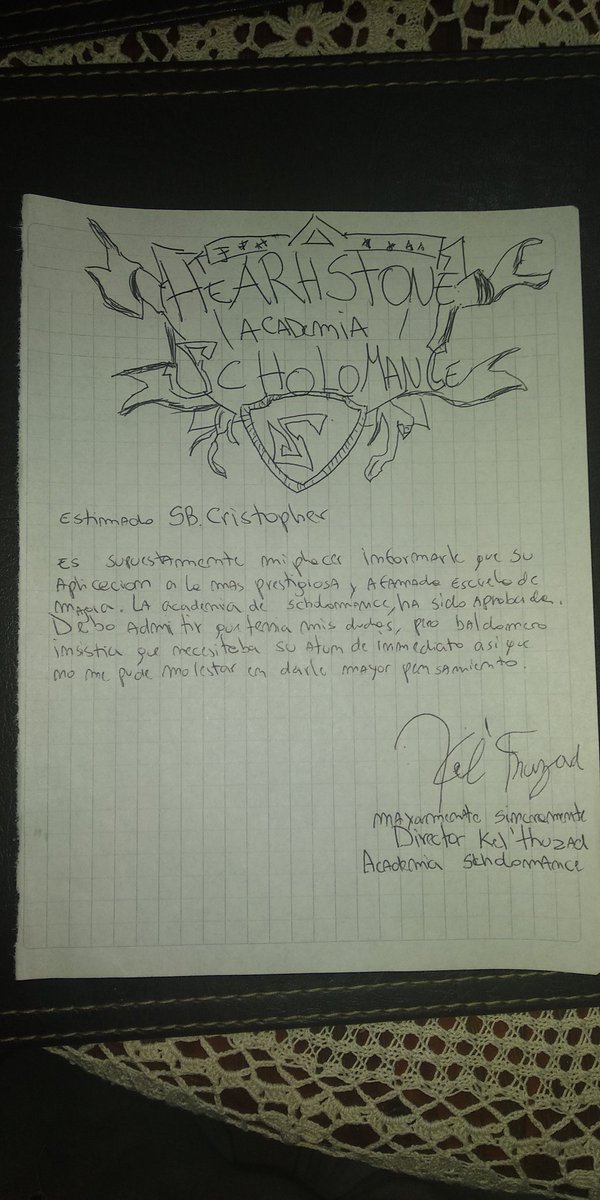 HEARHSTONE
ACADEMIA
SCHOLOMANCE
S
Estimado SB. Cristopher
Es supuestamente mi placer informarle que su
Aplicecion a la mas prestigiosa y Afamada Escuela de
magia. LA academia de schdomance, ha sido Aprobada.
Debo Admitir que tenia mis dudas, pero baldomero
insistia que necesitaba su Atum de immediato asi que
no me pude molestar en darle mayor pensamiento.
Kel'Thuzad
mayormente sinceramente
Director Kel'thuzad
Academia Schdomance